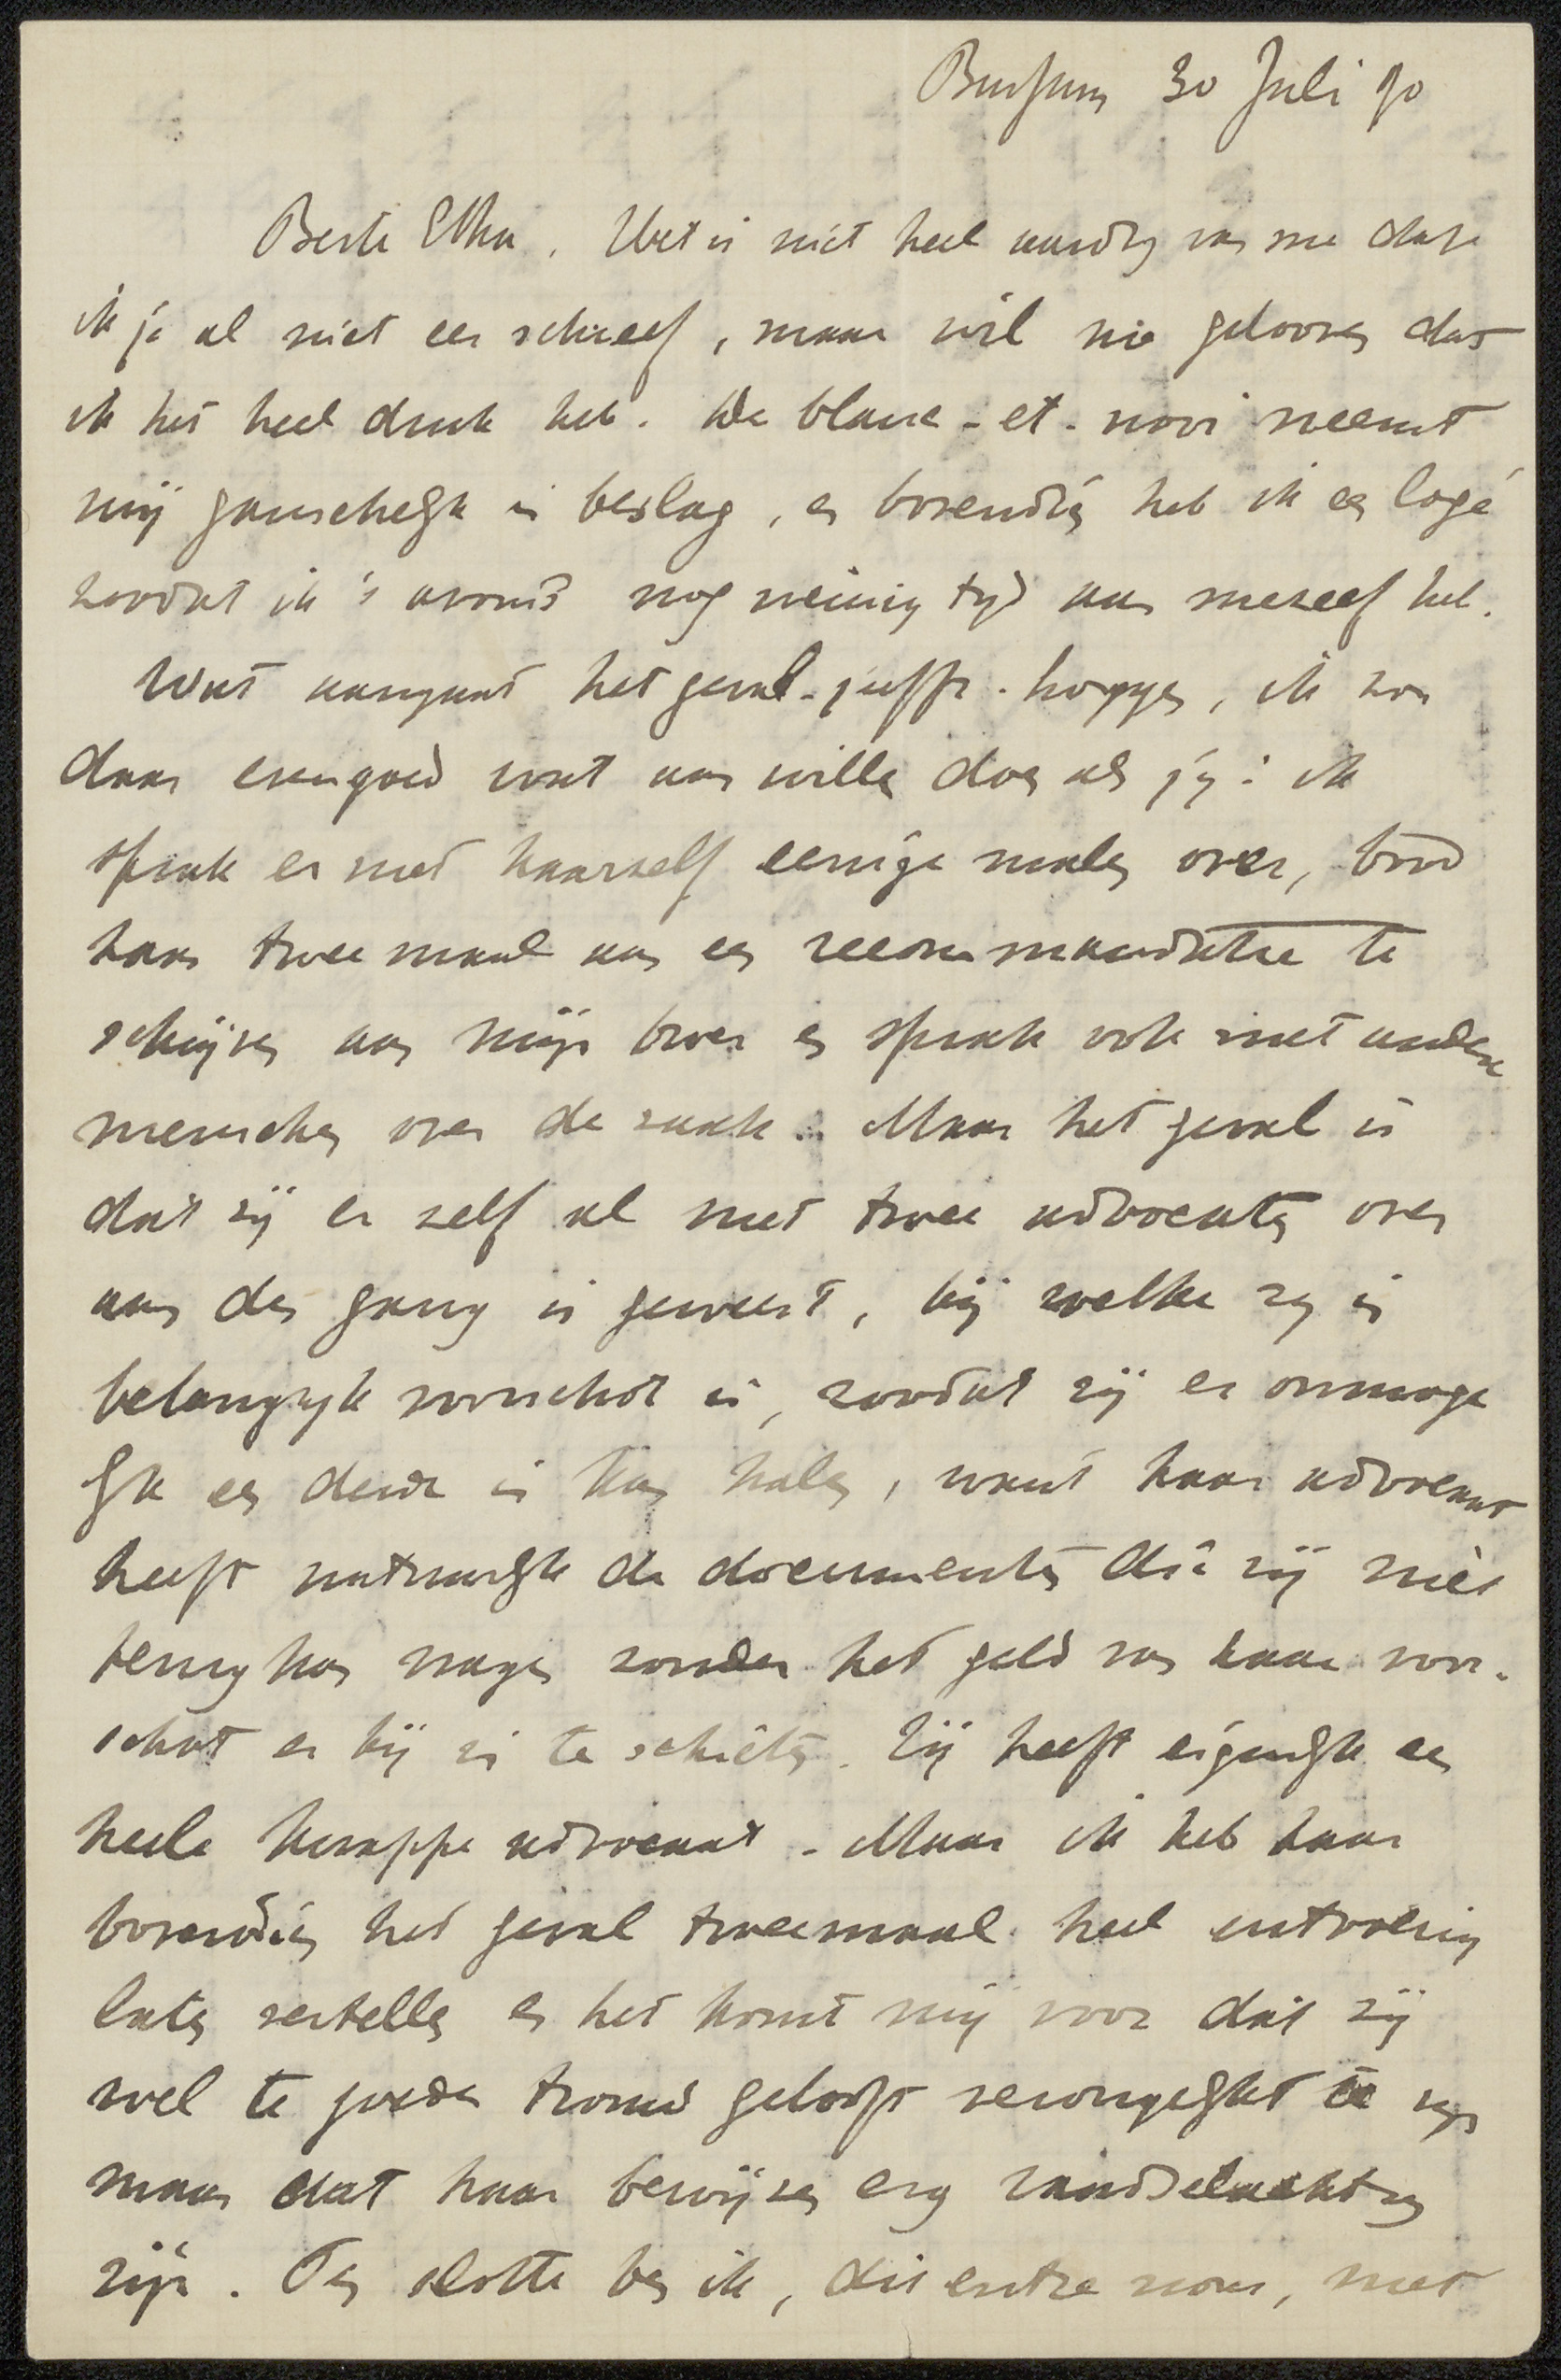 Bussum 30 Juli 90
Beste Etha. Het is niet heel aardig van me dat
ik je al niet eer schreef, maar wil me gelooven dat
ik het heel druk heb. De blanc-et-noir neemt
mij ganschelijk in beslag, en bovendien heb ik een logé
zoodat ik 's avonds nog weinig tijd aan mezelf heb.
Wat aangaat het geval-juffr. , ik zou
daar evengoed wat aan willen doen als jij: ik
sprak er met haarzelf eenige malen over, bood
haar tweemaal aan een recommandatie te
schrijven aan mijn broer en sprak ook met andere
menschen over de zaak. Maar het geval is
dat zij er zelf al met twee advocaten over
aan den gang is geweest, bij welke zij in
belangrijk voorschot is, zoodat zij er onmoge
lijk een derde in kan halen, want haar advocaat
heeft natuurlijk de documenten die zij niet
terug kan vragen zonder het geld van haar voor-
schot er bij in te schieten. Zij heeft eigenlijk een
heele knappe advocaat. Maar ik heb haar
bovendien het geval tweemaal heel
laten vertellen en het komt mij voor dat zij
wel te goeder trouw gelooft verongelijkt te zijn
maar dat haar bewijzen erg
zijn. Ten slotte ben ik, dit entre nous, met